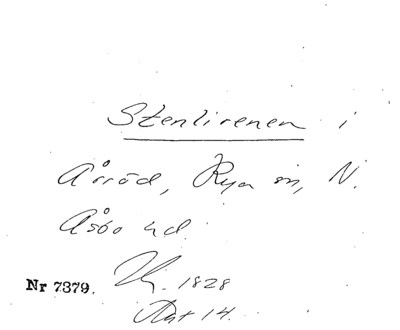 Stenlirenen i
Årröd, Rya sn, N.
Åsbo hd.
Nr 7379. 1828
Akt 14.